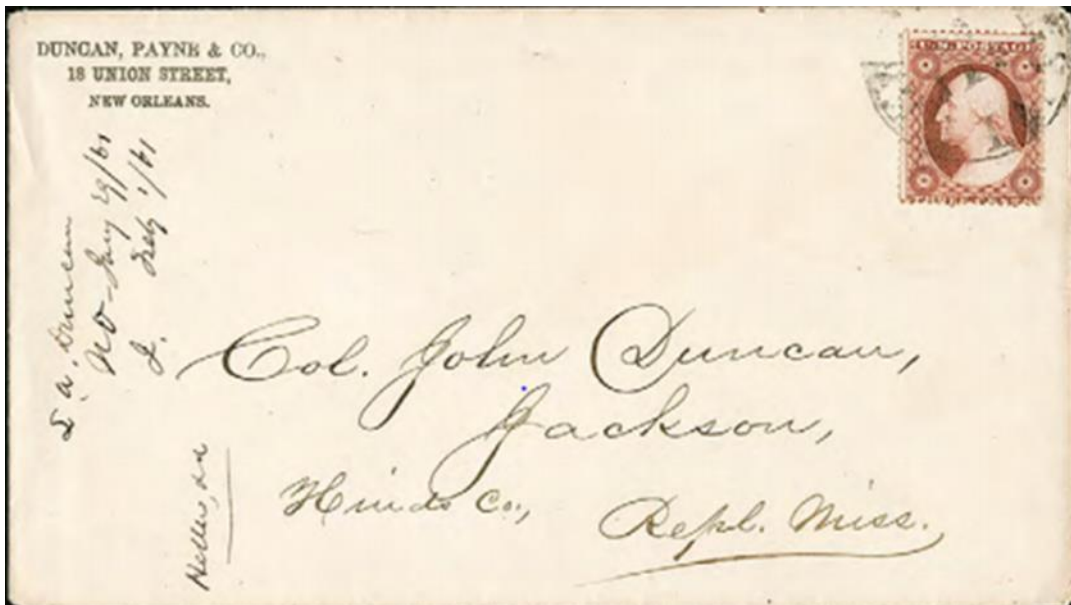 DUNCAN, PAYNE & CO.,
18 UNION STREET,
NEW ORLEANS.
U.S. POSTAGE
L. A. Duncan
NO - Jany 29/61
J. Feby 1/61
Col. John Duncan,
Jackson,
Hinds Co.,
Repl. Miss.